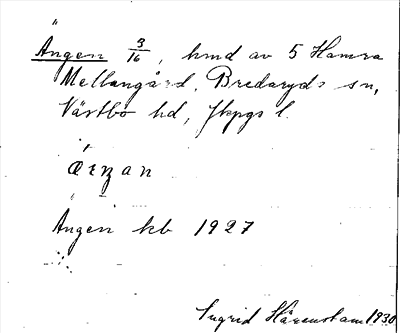 Ängen 3/16, hmd av 5 Hamra
Mellangård, Bredaryds sn,
Västbo hd, Jkpgs l.
Ängen kb 1927
Ingrid Härenstam 1930